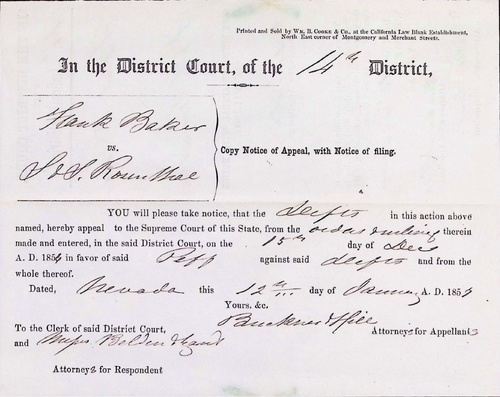 Printed and Sold by WM. B. COOKE & Co., at the California Law Blank Establishment,
North East corner of Montgomery and Merchant Streets.
In the District Court, of the 14th District,
Frank Baker
vs.
S & S. Rosenthal
Copy Notice of Appeal, with Notice of filing.
YOU will please take notice, that the Defts in this action above
named, hereby appeal to the Supreme Court of this State, from the order therein
made and entered, in the said District Court, on the 15th day of Dec
A. D. 185 in favor of said Plff against said Defts and from the
whole thereof.
Dated, Nevada this 12th day of January A. D. 185
Yours, &c.
Buckner & Hill
Attorneys for Appellants
To the Clerk of said District Court,
and Messrs Belden &
Attorneys for Respondent